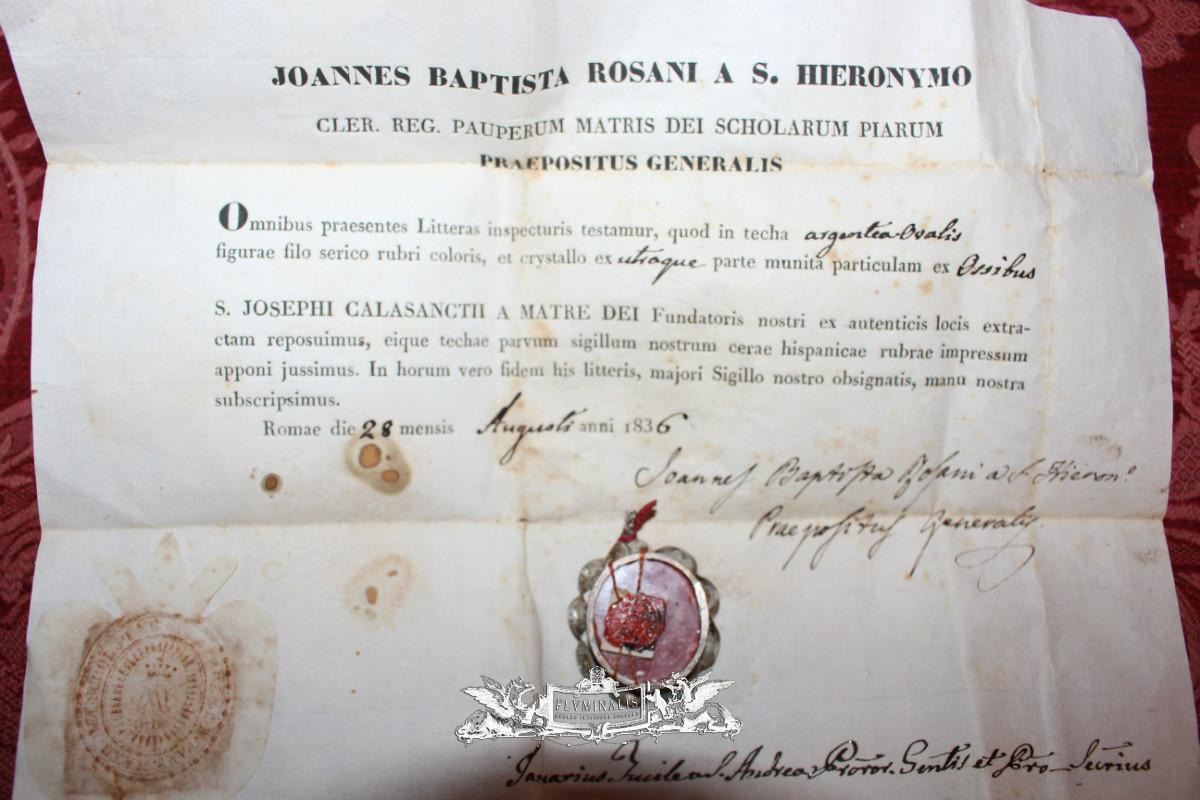 JOANNES BAPTISTA ROSANI A S. HIERONYMO
CLER. REG. PAUPERUM MATRIS DEI SCHOLARUM PIARUM
PRAEPOSITUS GENERALIS
Omnibus praesentes Litteras inspecturis testamur, quod in techa argentea Ovalis
figurae filo serico rubri coloris, et crystallo ex utraque parte munita particulam ex Ossibus
S. JOSEPHI CALASANCTII A MATRE DEI Fundatoris nostri ex autenticis locis extra-
ctam reposuimus, eique techae parvum sigillum nostrum cerae hispanicae rubrae impressum
apponi jussimus. In horum vero fidem his litteris, majori Sigillo nostro obsignatis, manu nostra
subscripsimus.
Romae die 28 mensis Augusti anni 1836
Joannes Baptista Rosani a S. Hieron.º
Praepositus Generalis.
FLVMINALIS
Januarius a S. Andrea Gentis et Pro-Secrius